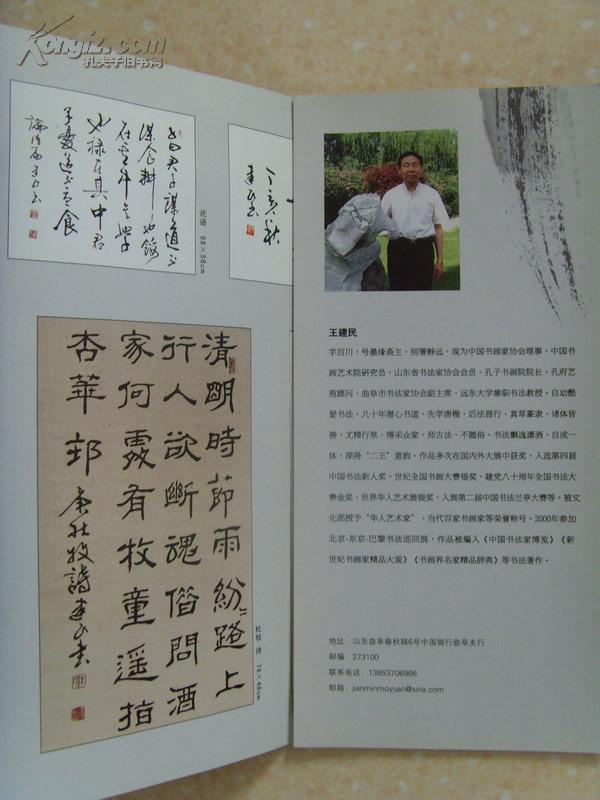 Kongfz.com
孔夫子旧书网
丁亥秋
论语 68×58cm
清明時節雨紛〃路上
行人欲斷魂借問酒
家何處有牧童遥指
杏華邨
杜牧 诗 78×48cm
王建民
字百川，号墨缘斋主，别署静远，现为中国书画家协会理事，中国书
画艺术院研究员，山东省书法家协会会员，孔子书画院院长，孔府艺
苑顾问，曲阜市书法家协会副主席，远东大学兼职书法教授。自幼酷
爱书法，几十年潜心书道，先学唐楷，后法晋行，真草篆隶，诸体皆
善，尤精行草，博采众家，师古法，不随俗，书法飘逸潇洒，自成一
体，深得“二王”意韵。作品多次在国内外大展中获奖，入选第四届
中国书法新人奖，世纪全国书画大赛银奖，建党八十周年全国书法大
赛金奖，世界华人艺术展银奖，入展第二届中国书法兰亭大赛等。被文
化部授予“华人艺术家”、当代百家书画家等荣誉称号。2000年参加
北京-东京-巴黎书法巡回展，作品被编入《中国书法家博览》《新
世纪书画家精品大观》《书画界名家精品辞典》等书法著作。
地址：山东曲阜春秋路6号中国银行曲阜支行
邮编：273100
联系电话：13853706966
邮箱：jianminmoyuan@sina.com